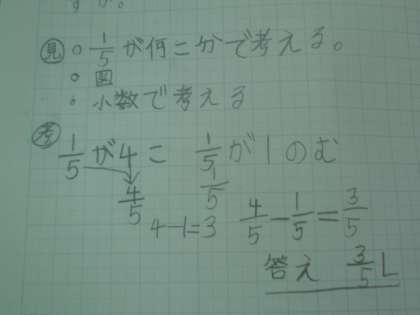 見 ○ 1/5が何こかで考える。
○ 図
○ 小数で考える
考 1/5が4こ 1/5が1のむ
4/5 1/5
4-1=3 4/5-1/5=3/5
答え 3/5L